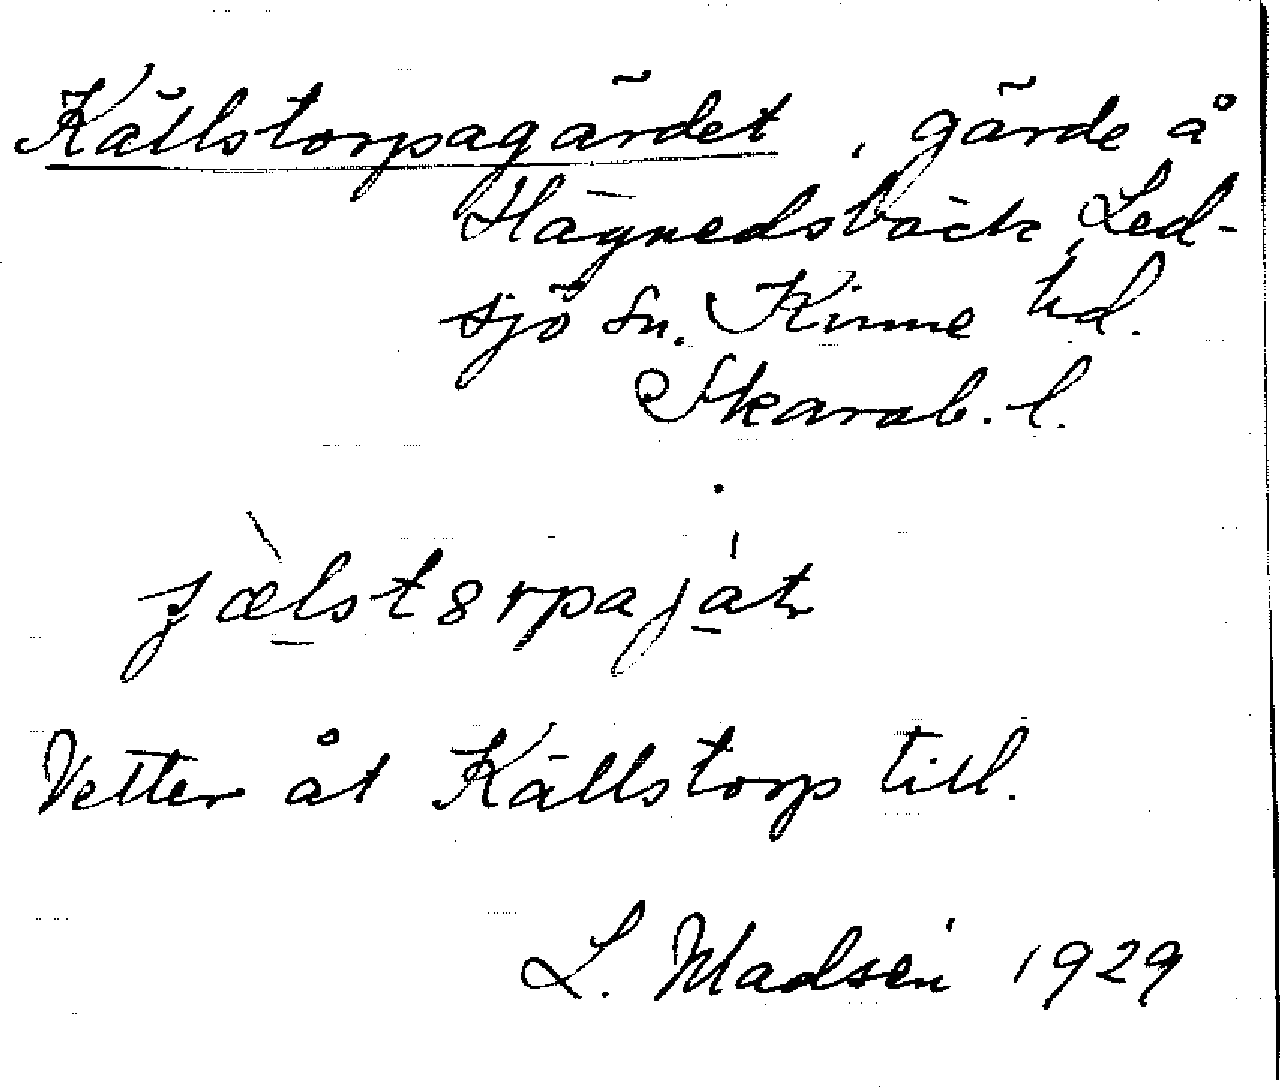 Källstorpagärdet, gärde å
Hägnedsbäck, Led-
sjö sn. Kinne hd.
Skarab. l.
Vetter åt Källstorp till.
L. Madsén 1929